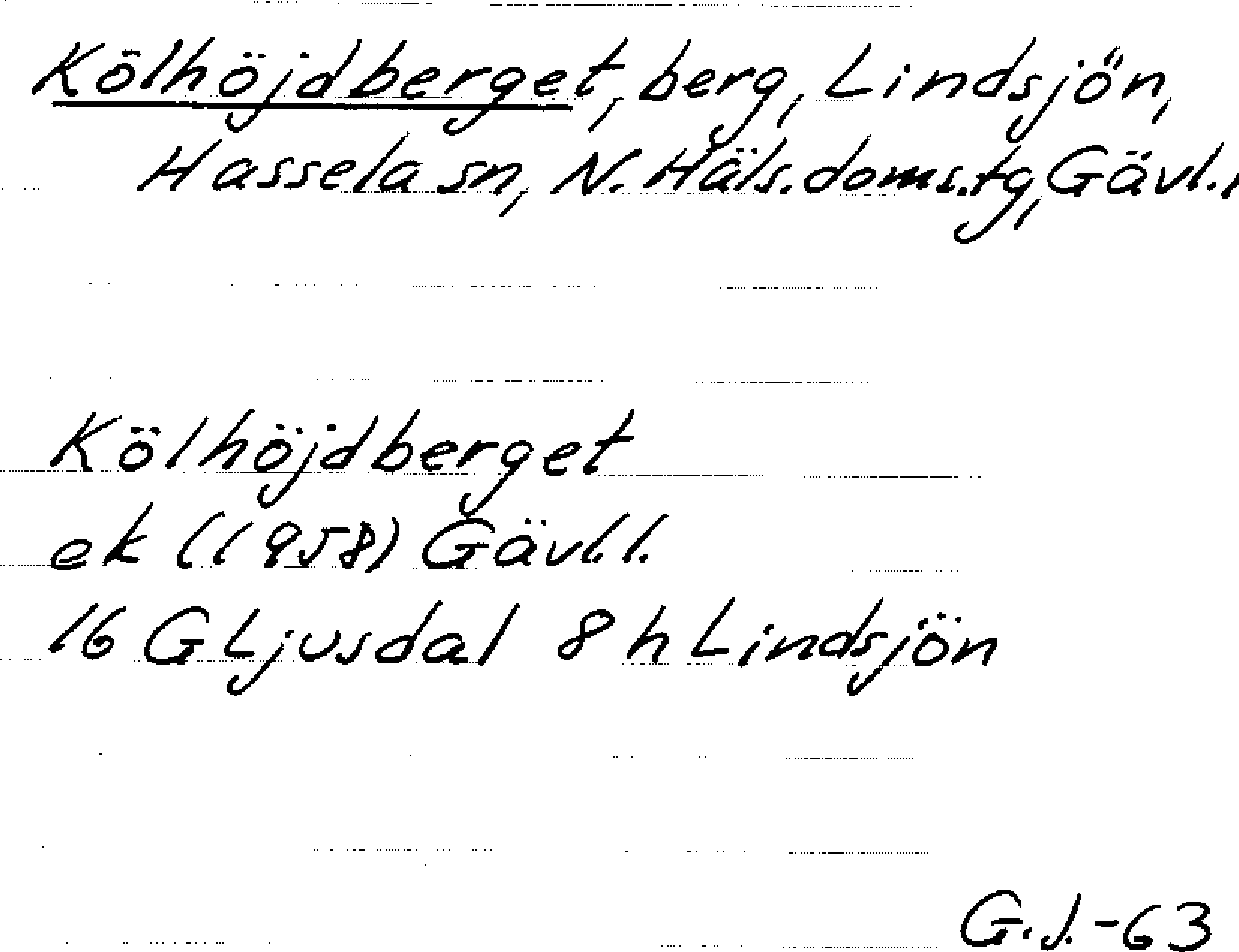 Kölhöjdberget, berg, Lindsjön,
Hassela sn, N. Häls. doms.tg, Gävl.
Kölhöjdberget
ek (1958) Gävl.l.
16 G Ljusdal 8 h Lindsjön
G.J.-63